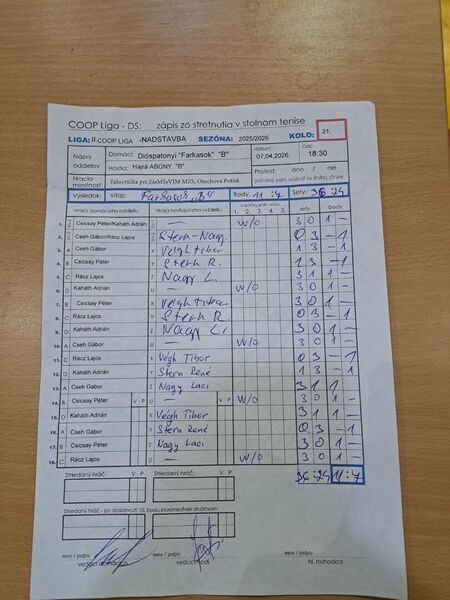 COOP Liga - DS: zápis zo stretnutia v stolnom tenise
LIGA: II COOP LIGA -NADSTAVBA SEZÓNA: 2025/2026 KOLO: 21.
Názov oddielov Domáci: Dióspatonyi "Farkasok" "B" dátum: 07.04.2026 čas: 18:30
Hostia: Hajrá ABONY "B" Protest: áno / nie
Hracia miestnosť: Telocvičňa pri ZŠsMŠsVJM MZS, Orechová Potôň
Výsledok: Víťaz: Farkasok "B" Body: 11 : 7 Sety: 36 : 24
Hráči domáceho oddielu Hráči hosťujúceho oddielu 1. 2. 3. 4. 5. sety body
1. Csicsay Péter/Kaháth Adrián — W/O 3 0 1 —
2. Cseh Gábor/Rácz Lajos Stern-Nagy 0 3 — 1
3. A Cseh Gábor X Végh Tibor 3 1 —
4. B Csicsay Péter Y Stern R. 1 3 — 1
5. C Rácz Lajos Z Nagy L. 3 1 1 —
6. D Kaháth Adrián U — W/O 3 0 1 —
7. B Csicsay Péter X Végh Tibor 3 0 1 —
8. C Rácz Lajos Y Stern R. 0 3 — 1
9. D Kaháth Adrián Z Nagy L. 3 0 1 —
10. A Cseh Gábor U — W/O 3 0 1 —
11. C Rácz Lajos X Végh Tibor 0 3 — 1
12. D Kaháth Adrián Y Stern René 1 3 — 1
13. A Cseh Gábor Z Nagy Laci 3 1 1
14. B Csicsay Péter V P U — V P W/O 3 0 1 —
15. D Kaháth Adrián X Végh Tibor 3 1 1 —
16. A Cseh Gábor Y Stern René 0 3 — 1
17. B Csicsay Péter Z Nagy Laci 3 0 1 —
18. C Rácz Lajos U — W/O 3 0 1 —
Striedaný hráč: V P Striedaný hráč: V P 36 : 24 11 : 7
Striedaný hráč - po dosiahnutí 10. bodu ktorýmkoľvek družstvom:
meno / podpis: meno / podpis: meno / podpis:
vedúci domácich vedúci hostí hl. rozhodca